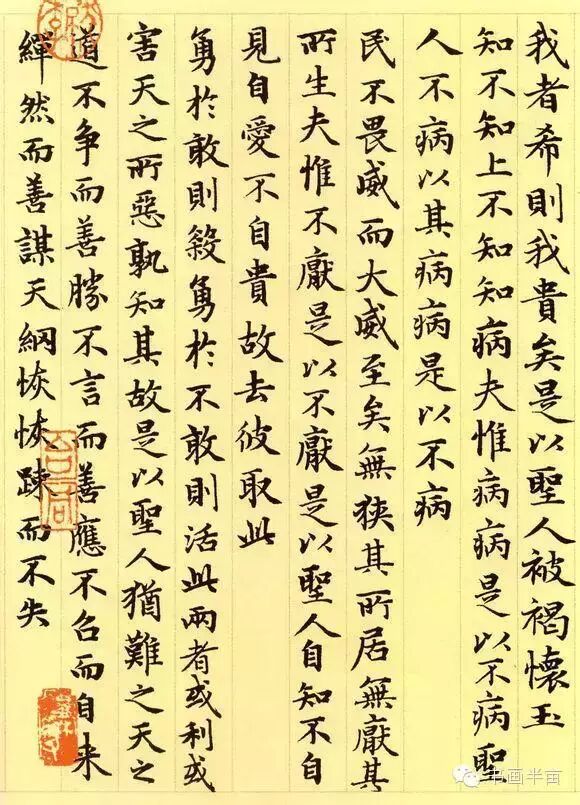 我者希則我貴矣是以聖人被褐懷玉
知不知上不知知病夫惟病病是以不病聖
人不病以其病病是以不病
民不畏威而大威至矣無狹其所居無厭其
所生夫惟不厭是以不厭是以聖人自知不自
見自愛不自貴故去彼取此
勇於敢則殺勇於不敢則活此兩者或利或
害天之所惡孰知其故是以聖人猶難之天之
道不争而善勝不言而善應不召而自来
繟然而善謀天網恢恢踈而不失
书画半亩